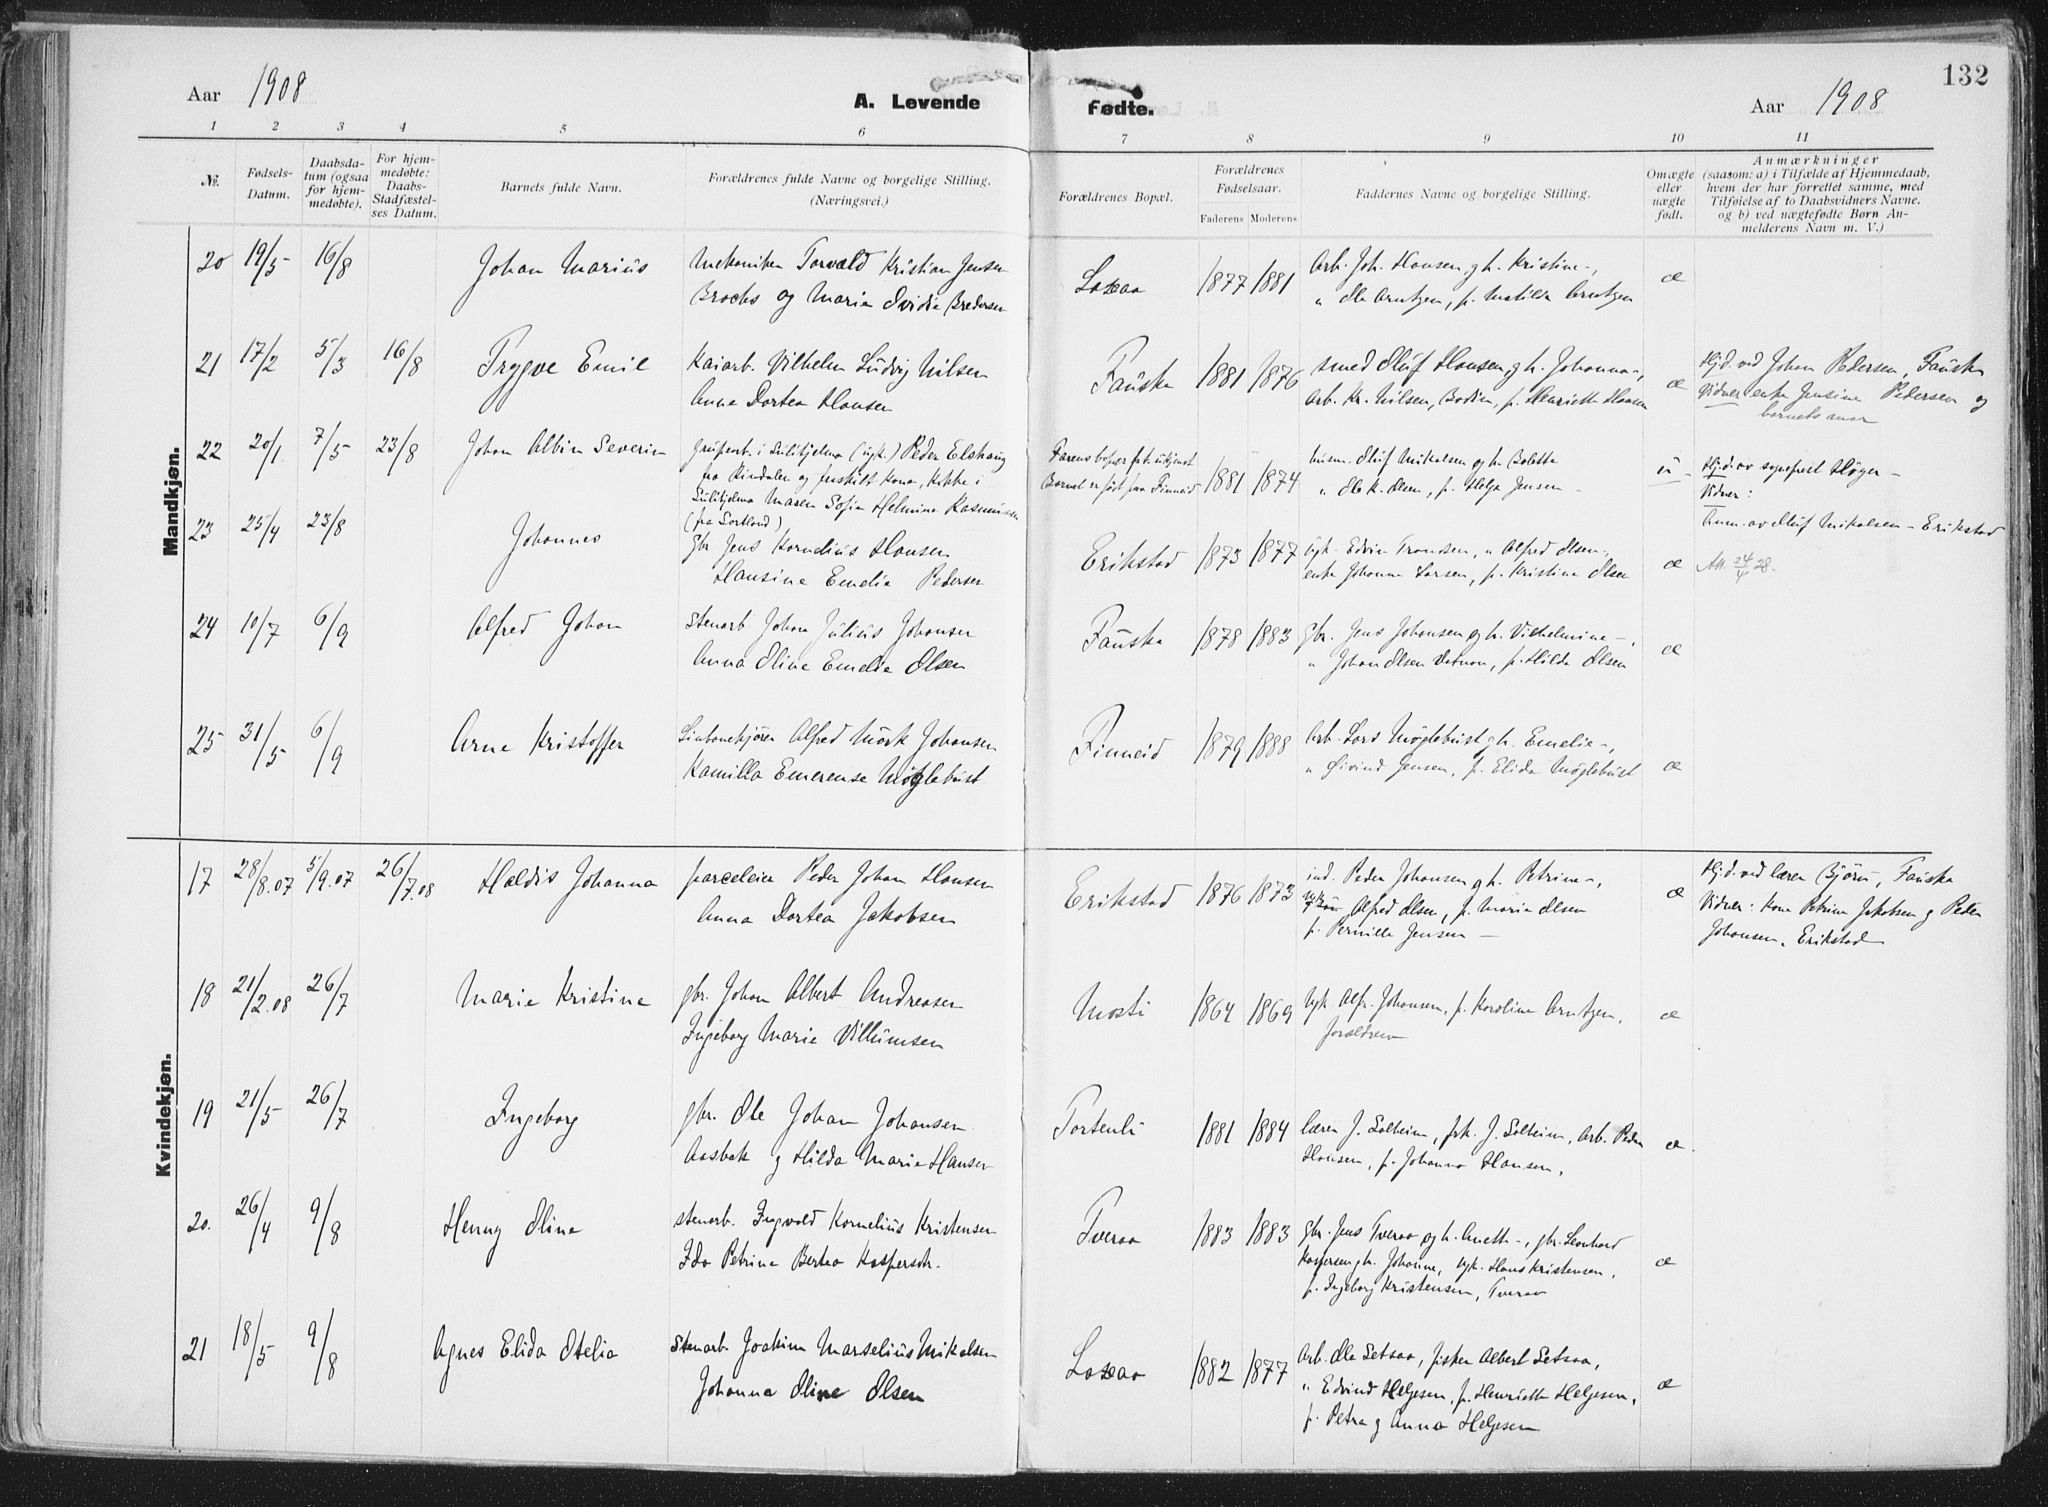 132
Aar 1908 A. Levende Fødte. Aar 1908
1 2 3 4 5 6 7 8 9 10 11
№.
Fødsels-
Datum.
Daabsda-
tum (ogsaa
for hjem-
medøbte).
For hjem-
medøbte:
Daabs-
Stadfæstel-
ses Datum.
Barnets fulde Navn.
Forældrenes fulde Navne og borgelige Stilling.
(Næringsvei.)
Forældrenes Bopæl.
Forældrenes
Fødselsaar.
Faderens Moderens
Faddernes Navne og borgelige Stilling.
Omægte
eller
uægte
født.
Anmærkninger
(saasom: a) i Tilfælde af Hjemmedaab,
hvem der har forrettet samme, med
Tilføielse af to Daabsvidners Navne.
og b) ved uægtefødte Børn An-
melderens Navn m. V.)
Mandkjøn.
20 19/5 16/8 Johan Marius
Mekaniker Torvald Kristian Jensen
Brochs og Marie Ovidia Bredesen
Laxaa 1877 1881
Arb. Joh. Hansen og h. Kristine -,
" Ole Arntzen, p. Matilda Arntzen
æ
21 17/2 5/3 16/8 Trygve Emil
Kaiarb. Vilhelm Ludvig Nilsen
Anna Dortea Hansen
Fauske 1881 1876
Smed Oluf Hansen og h. Johanna -,
Arb. Kr. Nilsen, Bodin, p. Henriette Hansen
æ
Hjd. ved Johan Pedersen, Fauske
Vidner enke Jensine Pedersen og
barnets mor
22 20/1 7/5 23/8 Johan Albin Severin
grubearb. i Sulitjelma (ugk.) Peder Elshaug
fra Rindalen og fraskilt kona, Kokke i
Sulitjelma Maren Sofie Helmine Rasmussen
(fra Sortland)
Farens bopæl f.t. ukjent
Barnet er født paa Finneid
1881 1874
husm. Oluf Mikalsen og h. Bolette
" Ole K. Olsen, p. Helga Jensen -
u -
Hjd. av sogneprest Høyer -
Vidner:
Anm. av Oluf Mikalsen - Erikstad
23 25/4 23/8 Johannes
Gbr. Jens Kornelius Hansen
Hansine Emelie Pedersen
Erikstad 1873 1877
Ugk. Edvin Transen, " Alfred Olsen,
enke Johanna Larsen, p. Kristine Olsen
æ
Att. 24/4 28.
24 10/7 6/9 Alfred Johan
Stenarb Johan Julius Johansen
Anna Oline Emelie Olsen
Fauske 1878 1883
Gbr. Jens Johansen og h. Vilhelmine -,
" Johan Olsen Vatnan, p. Hilda Olsen
æ
25 31/5 6/9 Arne Kristoffer
Alfred Mørk Johansen
Kamilla Emerense Møglebust
Finneid 1879 1888
Arb. Lars Møglebust og h. Emelie -,
" Øivind Jensen, p. Elida Møglebust
æ
Kvindekjøn.
17 28/8.07 5/9.07 26/7.08 Haldis Johanna
parceleier Peder Johan Hansen
Anna Dortea Jakobsen
Erikstad 1876 1873
ind. Peder Johansen og h. Petrine -,
Alfred Olsen, p. Marie Olsen
p. Pernille Jensen -
æ
Hjd. ved lærer Bjørn, Fauske
Vidner: Kone Petrine Jakobsen og Peder
Johansen, Erikstad
18 21/2.08 26/7 Marie Kristine
gbr. Johan Albert Andreasen
Ingeborg Marie Villumsen
Mosti 1864 1869
Ugk. Alfr. Johansen, p. Karoline Arntzen,
forældrene
æ
19 21/5 26/7 Ingeborg
gbr. Ole Johan Johansen
Aasbak og Hilda Marie Hansen
Tortenli 1881 1884
lærer J. Solheim, frk. J. Solheim, Arb. Peder
Hansen, p. Johanna Hansen,
æ
20. 26/4 9/8 Henny Oline
stenarb. Ingvald Kornelius Kristensen
Ida Petrine Bertea Kaspersdtr.
Tveraa 1883 1883
gbr. Jens Tveraa og h. Anette -, gbr. Leonhard
Kaspersen og h. Johanne, ugk. Hans Kristensen,
p. Ingeborg Kristensen, Tveraa
æ
21 18/5 9/8 Agnes Elida Otelia
Stenarb Joakim Marselius Mikalsen
Johanna Oline Olsen
Laxaa 1882 1877
Arb. Ole Setsaa, fisker Albert Setsaa,
" Edvind Helgesen, p. Henriette Helgesen,
p. Petra og Anna Helgesen
æ